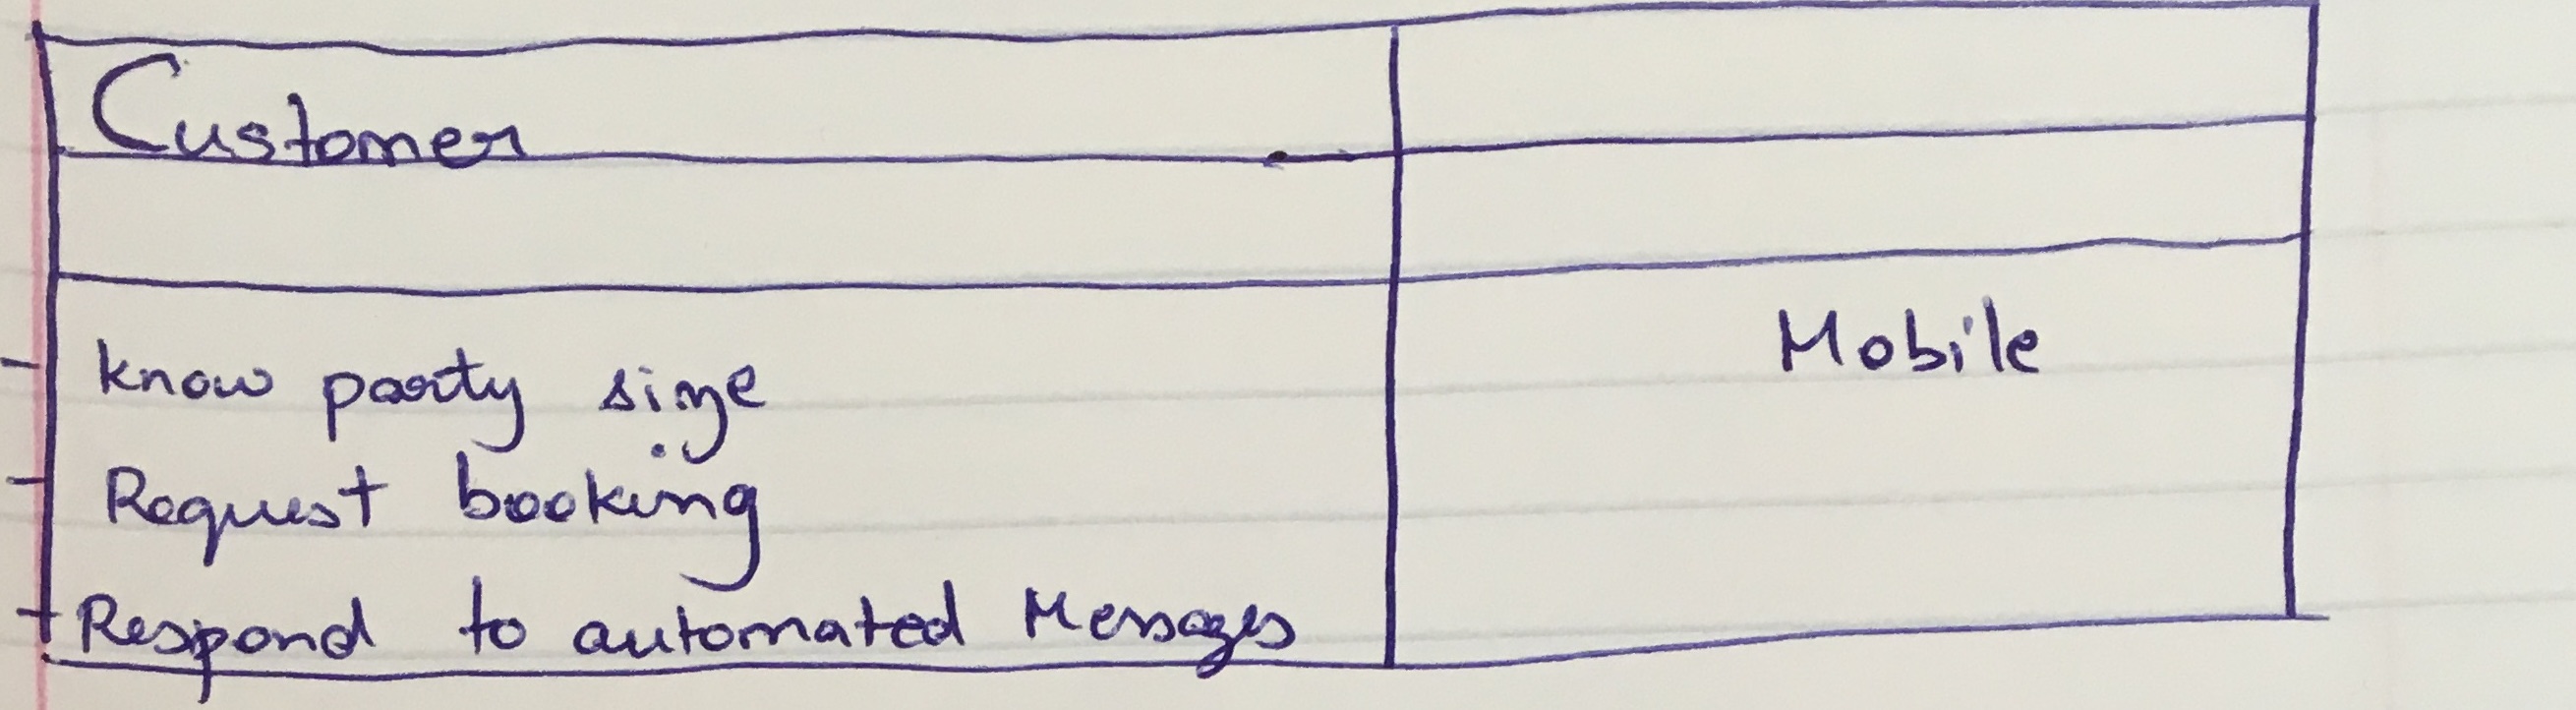 Customer
- know party size Mobile
- Request booking
- Respond to automated Messages